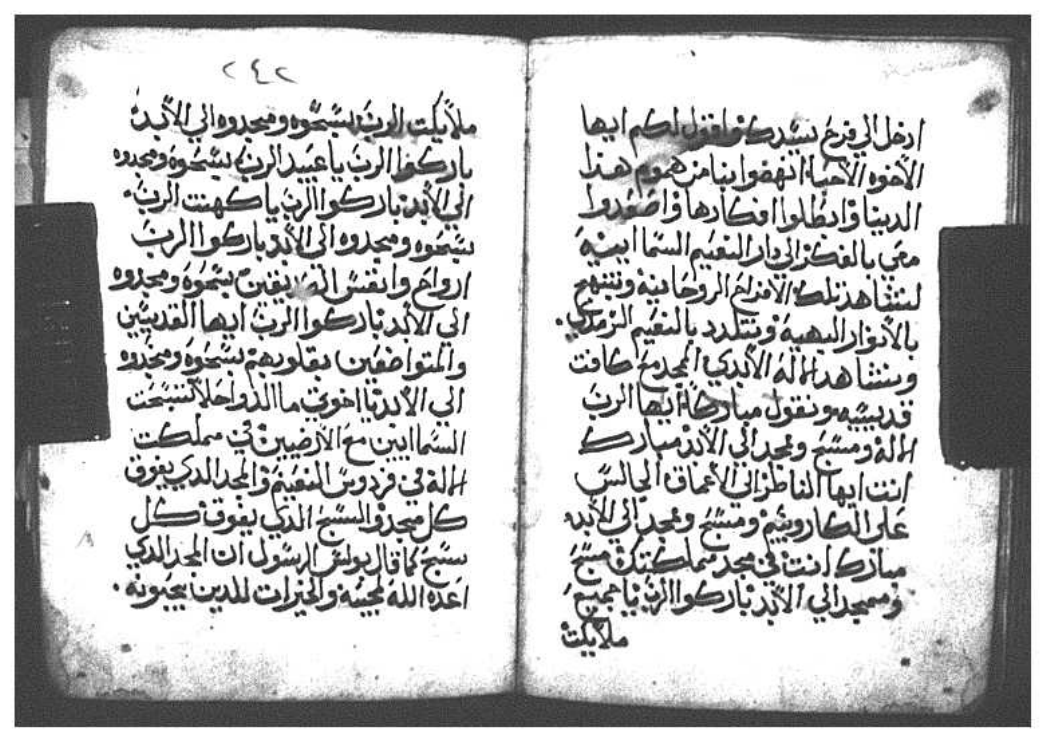 ادخل الي فرح سيدك واقول لكم ايها
الاخوه الاحبا انهضوا بنا من هموم هدا
الدينا وابطلوا افكارها واصعدوا
معي بالفكر الي دار النعيم السماايه
لنشاهد تلك الافراح الروحانيه ونبتهج
بالانوار البهيه ونتلدد بالنعيم الزمدي.
ونشاهد الاله الابدي الممجد مع كافت
قديسيه ونقول مبارك ايها الرب
الاله ومسبح وممجد الي الابد مبارك
انت ايها الناظر الي الاعماق الجالس
علي الكاروبيم ومسبح وممجد الي الابد
مبارك انت في مجد مملكتك مسبح
وممجد الي الابد باركوا الرب يا جميع
ملايكت
٢٤٢
ملايكت الرب يسبحوه ويمجدوه الي الابد
باركوا الرب يا عبيد الرب يسبحوه ويمجدوه
الي الابد باركوا الرب يا كهنت الرب
سبحوه ومجدوه الي الابد باركوا الرب
ارواح وانفس الصديقين يسبحوه ويمجدوه
الي الابد باركوا الرب ايها القديسين
والمتواضعين بقلوبهم يسبحوه ويمجدوه
الي الابد يا اخوتي ما الد واحلا تسبحت
السماايين مع الارضيين في مملكت
الاله في فردوس النعيم والمجد الدي يفوق
كل مجد والتسبيح الدي يفوق كل
تسبيح كما قال بولس الرسول ان المجد الدي
اعده الله لمحبيه والخيرات للدين يحبونه.